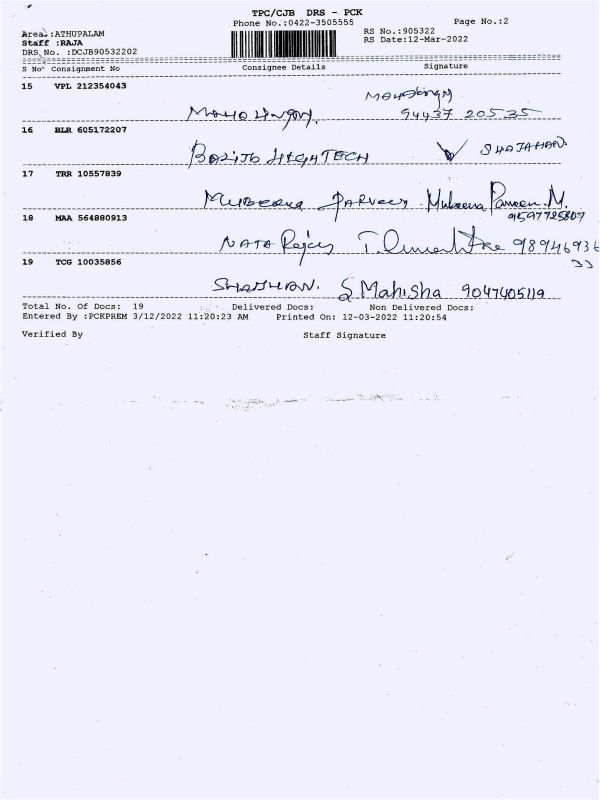 TPC/CJB DRS - PCK
Phone No.:0422-3505555 Page No.:2
Area :ATHUPALAM RS No.:905322
Staff :RAJA RS Date:12-Mar-2022
DRS No. :DCJB90532202
S No Consignment No Consignee Details Signature
15 VPL 212354043
94437 20535
16 BLR 605172207
HIGHTECH SHAJAHAN
17 TRR 10557839
Mubeena Parveen Mubeena Parveen M.
9597725807
18 MAA 564880913
NATA Rajan 98946936
33
19 TCG 10035856
S Mahisha 9047405119
Total No. Of Docs: 19 Delivered Docs: Non Delivered Docs:
Entered By :PCKPREM 3/12/2022 11:20:23 AM Printed On: 12-03-2022 11:20:54
Verified By Staff Signature